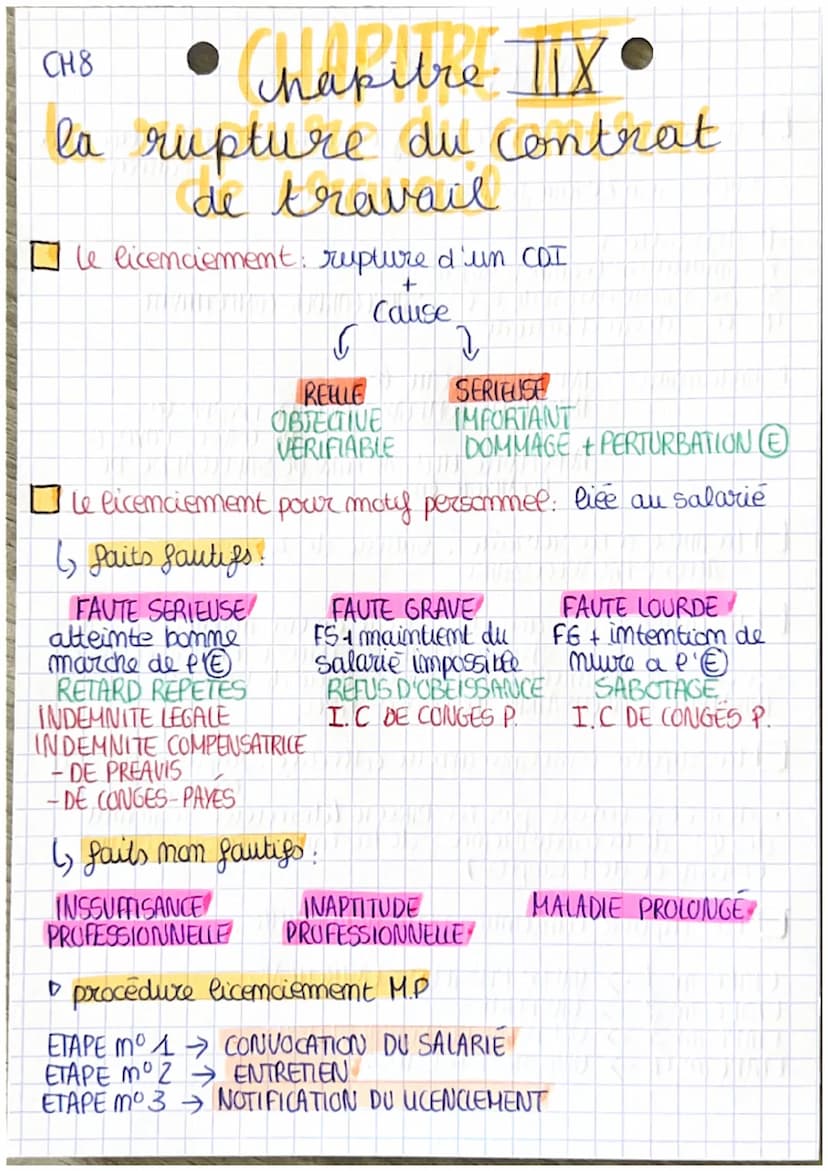 CH8
CHAPITRE IIX
chapitre IIX
la rupture du contrat
de travail
le licenciement : rupture d'un CDI
+
Cause
REELLE SERIEUSE
OBJECTIVE IMPORTANT
VERIFIABLE DOMMAGE + PERTURBATION (E)
le licenciement pour motif personnel : liée au salarié
↳ faits fautifs :
FAUTE SERIEUSE FAUTE GRAVE FAUTE LOURDE
atteinte bonne FS + maintient du FG + intention de
marche de l'(E) salarié impossible nuire a l'(E)
RETARD REPETES REFUS D'OBEISSANCE SABOTAGE
INDEMNITE LEGALE I.C DE CONGES P. I.C DE CONGÉS P.
INDEMNITE COMPENSATRICE
- DE PREAVIS
- DE CONGES-PAYÉS
↳ faits non fautifs :
INSSUFFISANCE INAPTITUDE MALADIE PROLONGÉ
PROFESSIONNELLE PROFESSIONNELLE
▷ procédure licenciement M.P
ETAPE n° 1 → CONVOCATION DU SALARIÉ
ETAPE n° 2 → ENTRETIEN
ETAPE n° 3 → NOTIFICATION DU LICENCIEMENT